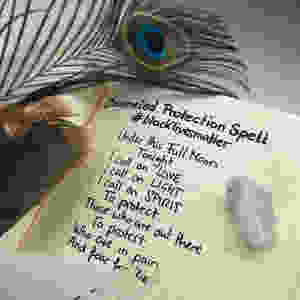 Protection Spell
#blacklivesmatter
Under this Full Moon
Tonight
I call on LOVE
I call on LIGHT
I call on SPIRIT
To protect
Those who are out there
To protest
Who are in pain
And fear for